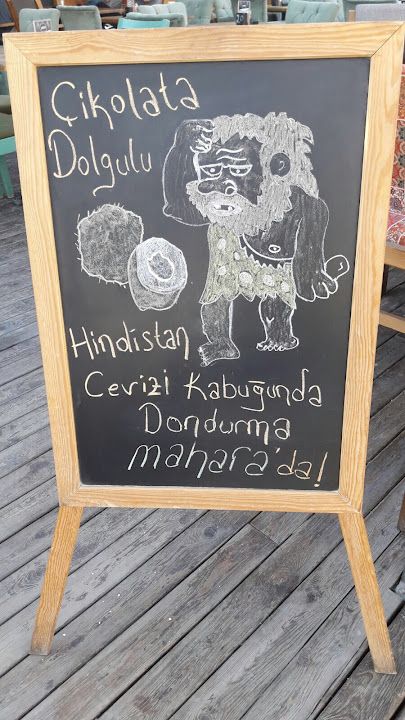 Çikolata
Dolgulu
Hindistan
Cevizi Kabuğunda
Dondurma
mahara'da!